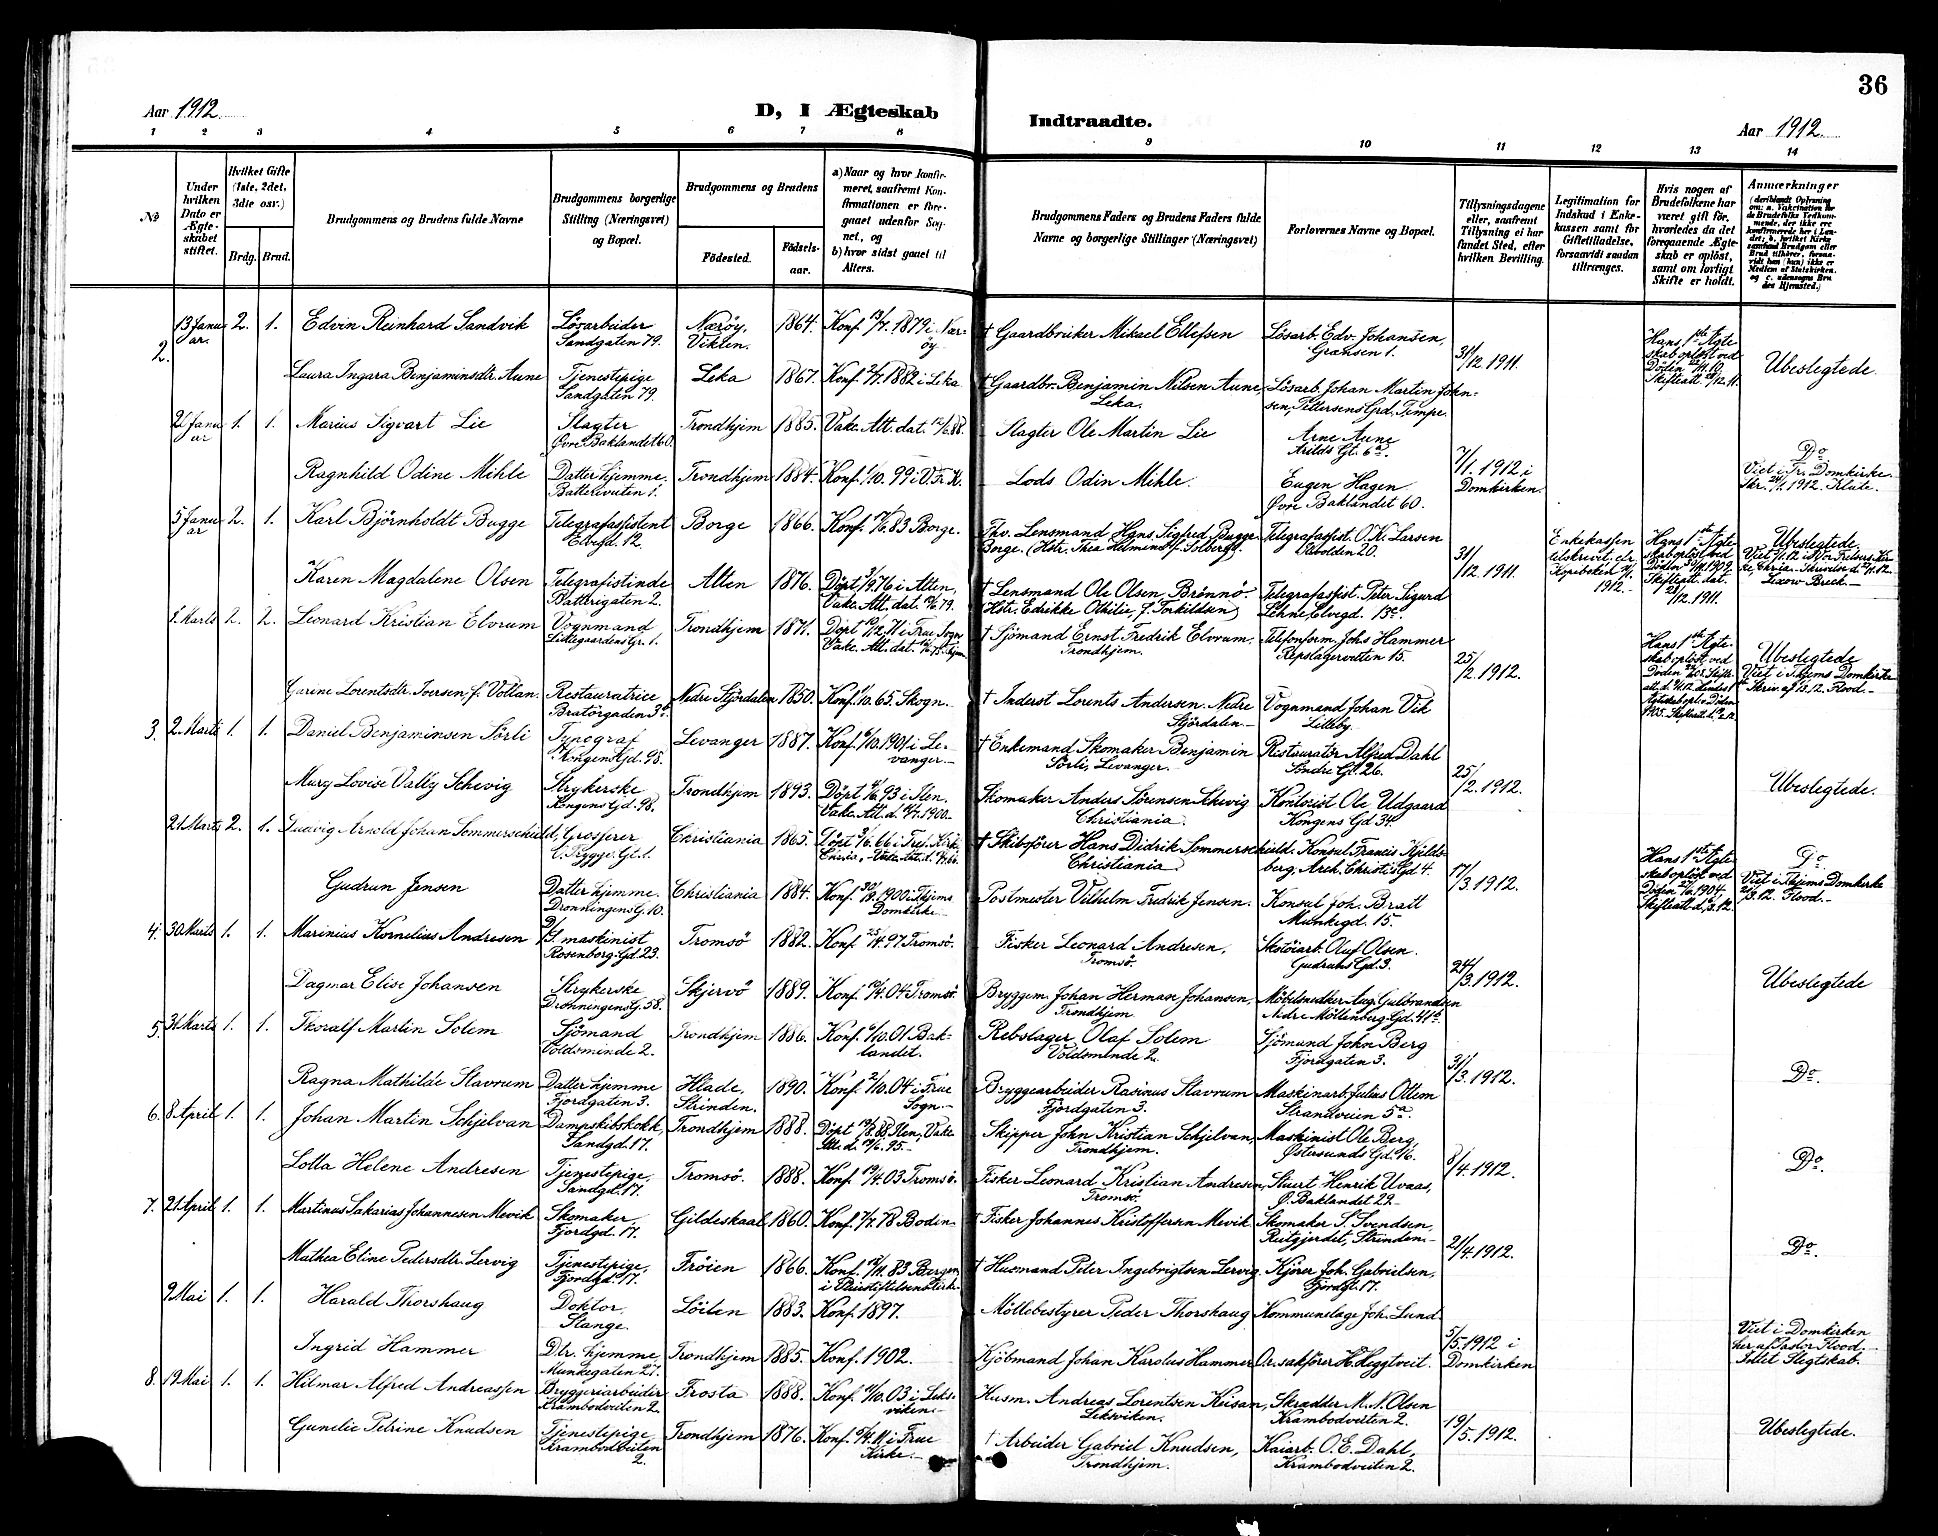 36
Aar 1912.
D, I Ægteskab
Indtraadte.
Aar 1912.
1 2 3 4 5 6 7 8 9 10 11 12 13 14
No
Under
hvilken
Dato er
Ægte-
skabet
stiftet.
Hvilket Gifte
(1ste, 2det,
3die osv.)
Brdg. Brud.
Brudgommens og Brudens fulde Navne
Brudgommens borgerlige
Stilling (Næringsvei)
og Bopæl.
Brudgommens og Brudens
Fødested.
Fødsels-
aar.
a) Naar og hvor konfir-
meret, saafremt Kon-
firmationen er fore-
gaaet udenfor Sog-
net, og
b) hvor sidst gaaet til
Alters.
Brudgommens Faders og Brudens Faders fulde
Navne og borgerlige Stillinger (Næringsvei)
Forlovernes Navne og Bopæl.
Tillysningsdagene
eller, saafremt
Tillysning ei har
fundet Sted, efter
hvilken Bevilling.
Legitimation for
Indskud i Enke-
kassen samt for
Giftetilladelse,
forsaavidt saadan
tiltrænges.
Hvis nogen af
Brudefolkene har
været gift før,
hvorledes da det
foregaaende Ægte-
skab er opløst,
samt om lovligt
Skifte er holdt.
Anmærkninger
(deriblandt Oplysning
om: a. Vaksination for
de Brudefolks Vedkom-
mende, der ikke ere
konfirmerede her i Lan-
det; b. hvilket Kirke
samfund Brudgom eller
Brud tilhører, forsaa-
vidt han (hun) ikke er
Medlem af Statskirken,
og c. udensogns Bru
des Hjemsted.)
2. 13 Janu- 2. 1. Edvin Reinhard Sandvik Løsarbeider Nærøy, 1864. Konf. 13/7. 1879 i Nær- † Gaardbruker Mikael Ellefsen Løsarb. Edv. Johansen,
ar. Sandgaten 79. Vikten. öy Grænsen 1.
31/12 1911. Hans 1ste Ægte skab opløst ved Døden Skifteatt. Ubeslegtede.
Laura Ingara Benjaminsdtr. Aune Tjenestepige Leka 1867. Konf. 2/7. 1882 i Leka † Gaardbr. Benjamin Nilsen Aune, Løsarb. Johan Martin John-
Sandgaten 79. Leka. sen, Pettersens Grd, Tempe.
2 Janu 1. 1. Marius Sigvart Lie Slagter Trondhjem 1885. Vakc. Att. dat. 12/6.88. Slagter Ole Martin Lie Arne Aune
ar Øvre Baklandet 60. Arilds Gt. 6a.
7/1. 1912 i Domkirken. Do Viet i Tr. Domkirke Skr. 24/1. 1912. Klute.
Ragnhild Odine Mihle Datter hjemme. Trondhjem 1884. Konf. 1/10. 99 i V. Fr. K. Lods Odin Mihle. Eugen Hagen
Batteriveiten 1. Øvre Baklandet 60.
5 Janu 2. 1. Karl Bjørnholdt Bugge Telegrafassistent Borge 1866. Konf. 83 Borge. Fhv. Lensmand Hans Sigfred Bugge Telegrafassist. O. K. Larsen
ar Elvegd. 12. Borge. (Hstr. Thea Helmine f. Solberg).
31/12.1911. Enkekassen 1912. Hans 1ste Ægte skab opløst ved Døden 1909. Skifteatt. dat. 28/12.1911. Ubeslegtede
Karen Magdalene Olsen Telegrafistinde Alten 1876. Døpt 3/9.76 i Alten, † Lensmand Ole Olsen Brønnø. Telegrafassist. Peter Sigurd
Batterigaten 2. Vakc. Att. dat. 79. Hstr. Edrikke Othilie, f. Torkildsen) Lehne, Elvegd. 13c.
1. Marts 2. 2. Leonard Kristian Elvrum Vognmand Trondhjem 1871. Døpt 71 i Frue Sogn † Sjømand Ernst Fredrik Elvrum. Telefonform. Johs Hammer
Lillegaardens Gr. 1. Vakc. Att. dat. Trondhjem. Repslagerveiten 15.
25/2.1912. Hans 1ste Ægte skab opløst ved Døden Ubeslegtede Viet i Thjems Domkirke Skriv. af 13.12. Flood.-
Garine Lorentsdtr. Iversen, f. Vollan. Restauratrice Nedre Stjørdalen 1850. Konf. 1/10.65. Skogn. † Inderst Lorents Andersen. Nedre Vognmand Johan Vik
Bratørgaden 3b. Stjørdalen Lilleby.
3. 2. Marts 1. 1. Daniel Benjaminsen Sørli Typograf Levanger 1887. Konf. 6/10.1901 i Le- † Enkemand Skomaker Benjamin Restauratør Alfred Dahl
Kongens Gd. 98. vanger.- Sörli, Levanger. Søndre Gt. 26.
25/2.1912. Ubeslegtede.
Mary Lovise Vally Schevig Strykerske Trondhjem 1893. Døpt 93 i Ilen. Skomaker Anders Sørensen Skevig Kontorist Ole Udgaard
Kongens Gd. 98. Vakc. Att. d. 1900.- Christiania. Kongens Gd. 34.
21 Marts 2. 1. Ludvig Arnold Johan Sommerschield, Grosserer Christiania 1865. Døpt 66 i Tref. Kirk. † Skibsfører Hans Didrik Sommerschield. Konsul Francis Kjelds-
Brygge. Gt. 1. Christiania berg, Arch. Christies Gd 4.
17/3.1912. Hans 1ste Ægte skab opløst ved Døden 1904. Skifteatt. d. 3.12. Do Viet i Thjems Domkirke 21/3.12. Flood.-
Gudrun Jensen Datter hjemme. Christiania 1884. Konf. 30/9.1900 i Thjems Postmester Vilhelm Fredrik Jensen. Konsul Joh. Bratt
Dronningens G. 10. Domkirke Munkegd. 15.
4. 30 Marts 1. 1. Marinius Kornelius Andresen maskinist Tromsø 1882. Konf. 25/4.97 Tromsø. Fisker Leonard Andresen, Skotøiarb. Oluf Olsen.
Rosenborg-Gd. 23. Tromsø. Gudruns Gd. 3.
24/3.1912. Ubeslegtede
Dagmar Elise Johansen Strykerske Skjervø 1889. Konf. 10/4.04 Tromsø. Bryggem. Johan Herman Johansen, Møbelsnedker Aug. Gulbrandsen
Dronningens G. 58. Trondhjem Nedre Møllenberg Gd. 41b.
5. 31 Marts 1. 1. Thoralf Martin Solem Sjømand Trondhjem 1886. Konf. 6/10.01 Bak- Rebslager Olaf Solem Sjømand John Berg
Voldsminde 2. landet. Voldsminde 2 Fjordgaten 3.
31/3.1912. Do.
Ragna Mathilde Stavrum Datter hjemme Hlade, 1890. Konf. 2/10.04 i Frue Bryggearbeider Rasinus Stavrum Maskinarb. Julius Ottem
Fjordgaten 3. Strinden. Sogn.- Fjordgaten 3. Strandveien 5a.
6. 8 April 1. 1. Johan Martin Schjelvan Dampskibskokk, Trondhjem 1888. Døpt 88 Ilen, Vakc Skipper John Kristian Schjelvan, Maskinist Ole Berg,
Sandgd. 17. Att. d. 95.- Trondhjem. Østersunds Gd. 16.
8/4.1912. Do.
Lolla Helene Andresen Tjenestepige, Tromsø. 1888. Konf. 19/4.03 Tromsø. Fisker Leonard Kristian Andresen, Stuert Henrik Uvaas,
Sandgd. 17. Tromsø. Ø. Baklandet 29.
7. 21 April 1. 1. Martinus Sakarias Johannesen Mevik Skomaker Gildeskaal 1860. Konf. 7/7.78 Boden. † Fisker Johannes Kristoffersen Mevik Skomaker S. Svendsen,
Fjordgd. 17. Reitgjerdet, Strinden.-
21/4.1912. Do.
Mathea Eline Pedersdtr. Lervig Tjenestepige, Frøien 1866. Konf. 83 Bergen † Husmand Peter Ingebrigtsen Lervig Kjører Joh. Gabrielsen,
Fjordgd. 17. Fjordgt. 17.
9 Mai 1. 1. Harald Thorshaug Doktor, Løiten 1883. Konf. 1897. Møllebestyrer Peder Thorshaug Kommunelæge Joh. Lund
Stange.
5/5.1912 i Domkirken Viet i Domkirken her af Pastor Flood.- Intet Slegtskab.
Ingrid Hammer Dtr. hjemme Trondhjem 1885. Konf. 1902. Kjøbmand Johan Karolus Hammer Or. sakfører H. Heggtveit.
Munkegaten 27.
8. 19 Mai 1. 1. Hilmar Alfred Andreassen Bryggeriarbeider Frosta 1888. Konf. 03 i Leks- Husm. Andreas Lorentsen Keisan, Skrædder M. N. Olsen
Krambodveiten 2. viken.- Leksviken. Krambodveiten 2.
19/5.1912. Ubeslegtede.
Gunelie Petrine Knudsen Tjenestepige Trondhjem 1876. Konf. i Frue † Arbeider Gabriel Knudsen, Kaiarb. O. E. Dahl,
Krambodveiten 2. Kirke.- Trondhjem. Krambodveiten 2.